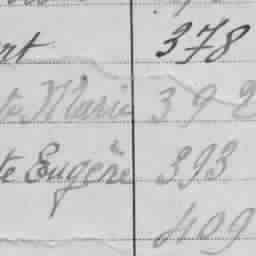 rt 378
te Marie 392
te Eugène 393
409